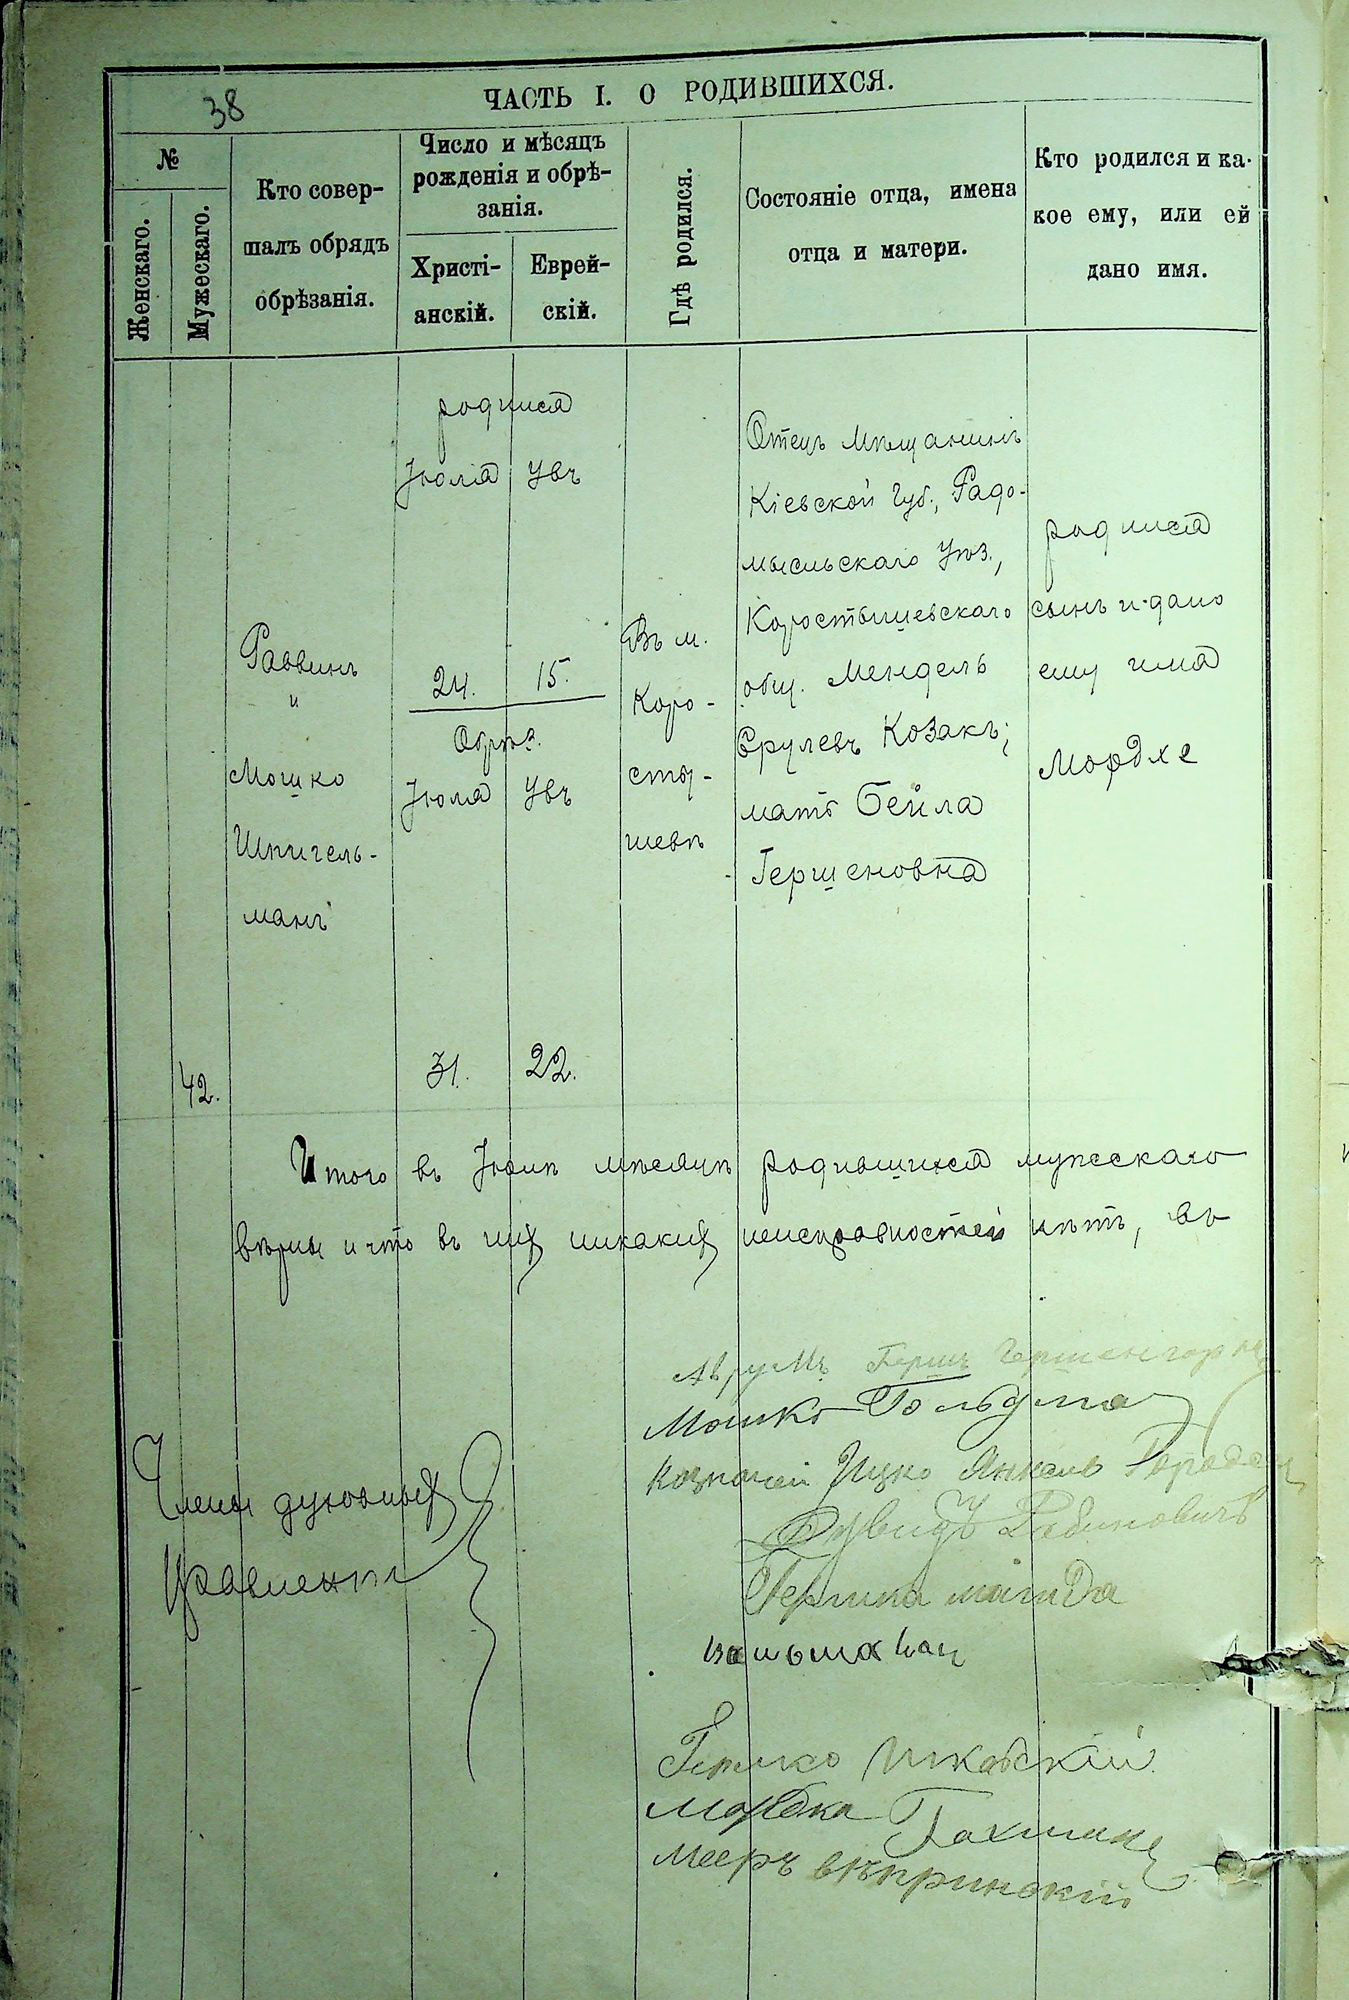 38
ЧАСТЬ I. О РОДИВШИХСЯ.
№
Женскаго.
Мужескаго.
Кто совер-
шалъ обрядъ
обрѣзанія.
Число и мѣсяцъ
рожденія и обрѣ-
занія.
Христі-
анскій.
Еврей-
скій.
Гдѣ родился.
Состояніе отца, имена
отца и матери.
Кто родился и ка-
кое ему, или ей
дано имя.
42.
Раввинъ
и
Мошко
Шпигель-
манъ
родился
Іюля
24.
Обрѣз.
Іюля
31.
Увъ
15.
Увъ
22.
Въ м.
Коро-
сты-
шевѣ
Отецъ Мѣщанинъ
Кіевской Губ., Радо-
мысльскаго Уѣз.,
Коростышевскаго
общ. Мендель
Срулевъ Козакъ;
мать Бейла
Гершеновна
родился
сынъ и дано
ему имя
Мордхе
Итого въ Іюлѣ мѣсяцѣ родившихся мужескаго
вѣрны и что въ них никаких неисправностей нѣтъ, въ
Члены духовных
Правленія
Аврумъ Гершъ
Мошко Гольдма
Ицко Янкель
Давидъ Рабиновичъ
Гершка магида
Мордка Гахман
Мееръ вѣпринскій